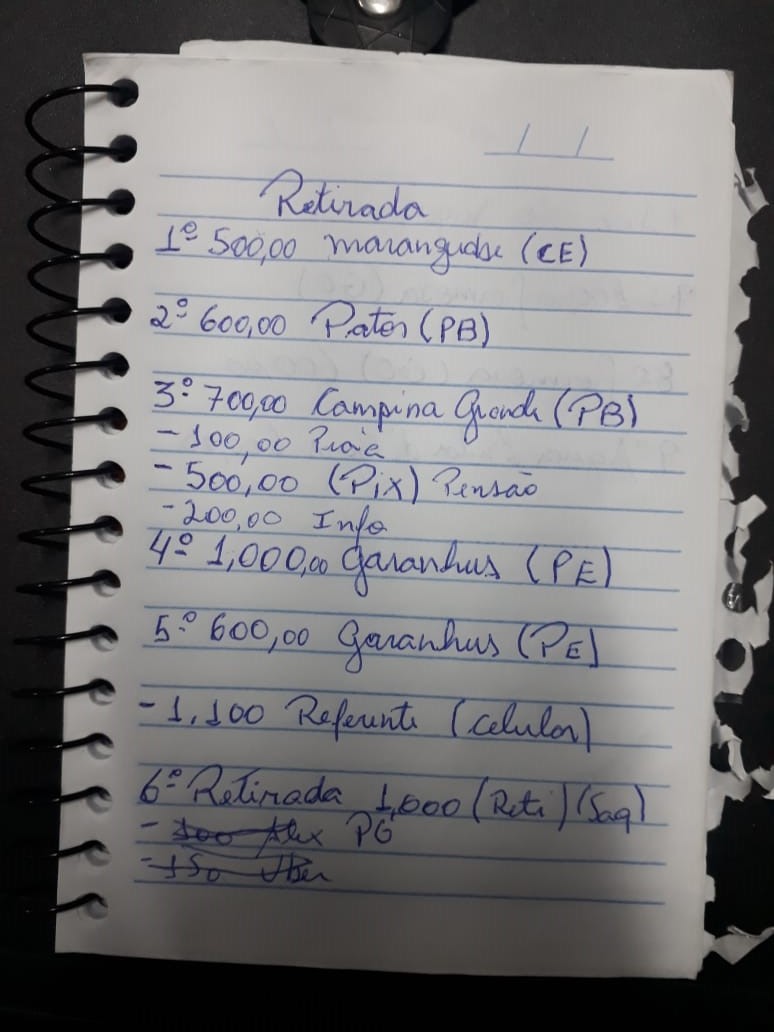 / /
Retirada
1º 500,00 maranguape (CE)
2º 600,00 Patos (PB)
3º 700,00 Campina Grande (PB)
- 100,00
- 500,00 (Pix) Pensão
- 200,00 Info
4º 1,000,00 garanhus (PE)
5º 600,00 garanhus (PE)
- 1,100 Referente (celular)
6º Retirada 1,000 (Reti) (Saq)
- 300 Alex PG
- 150 Uber